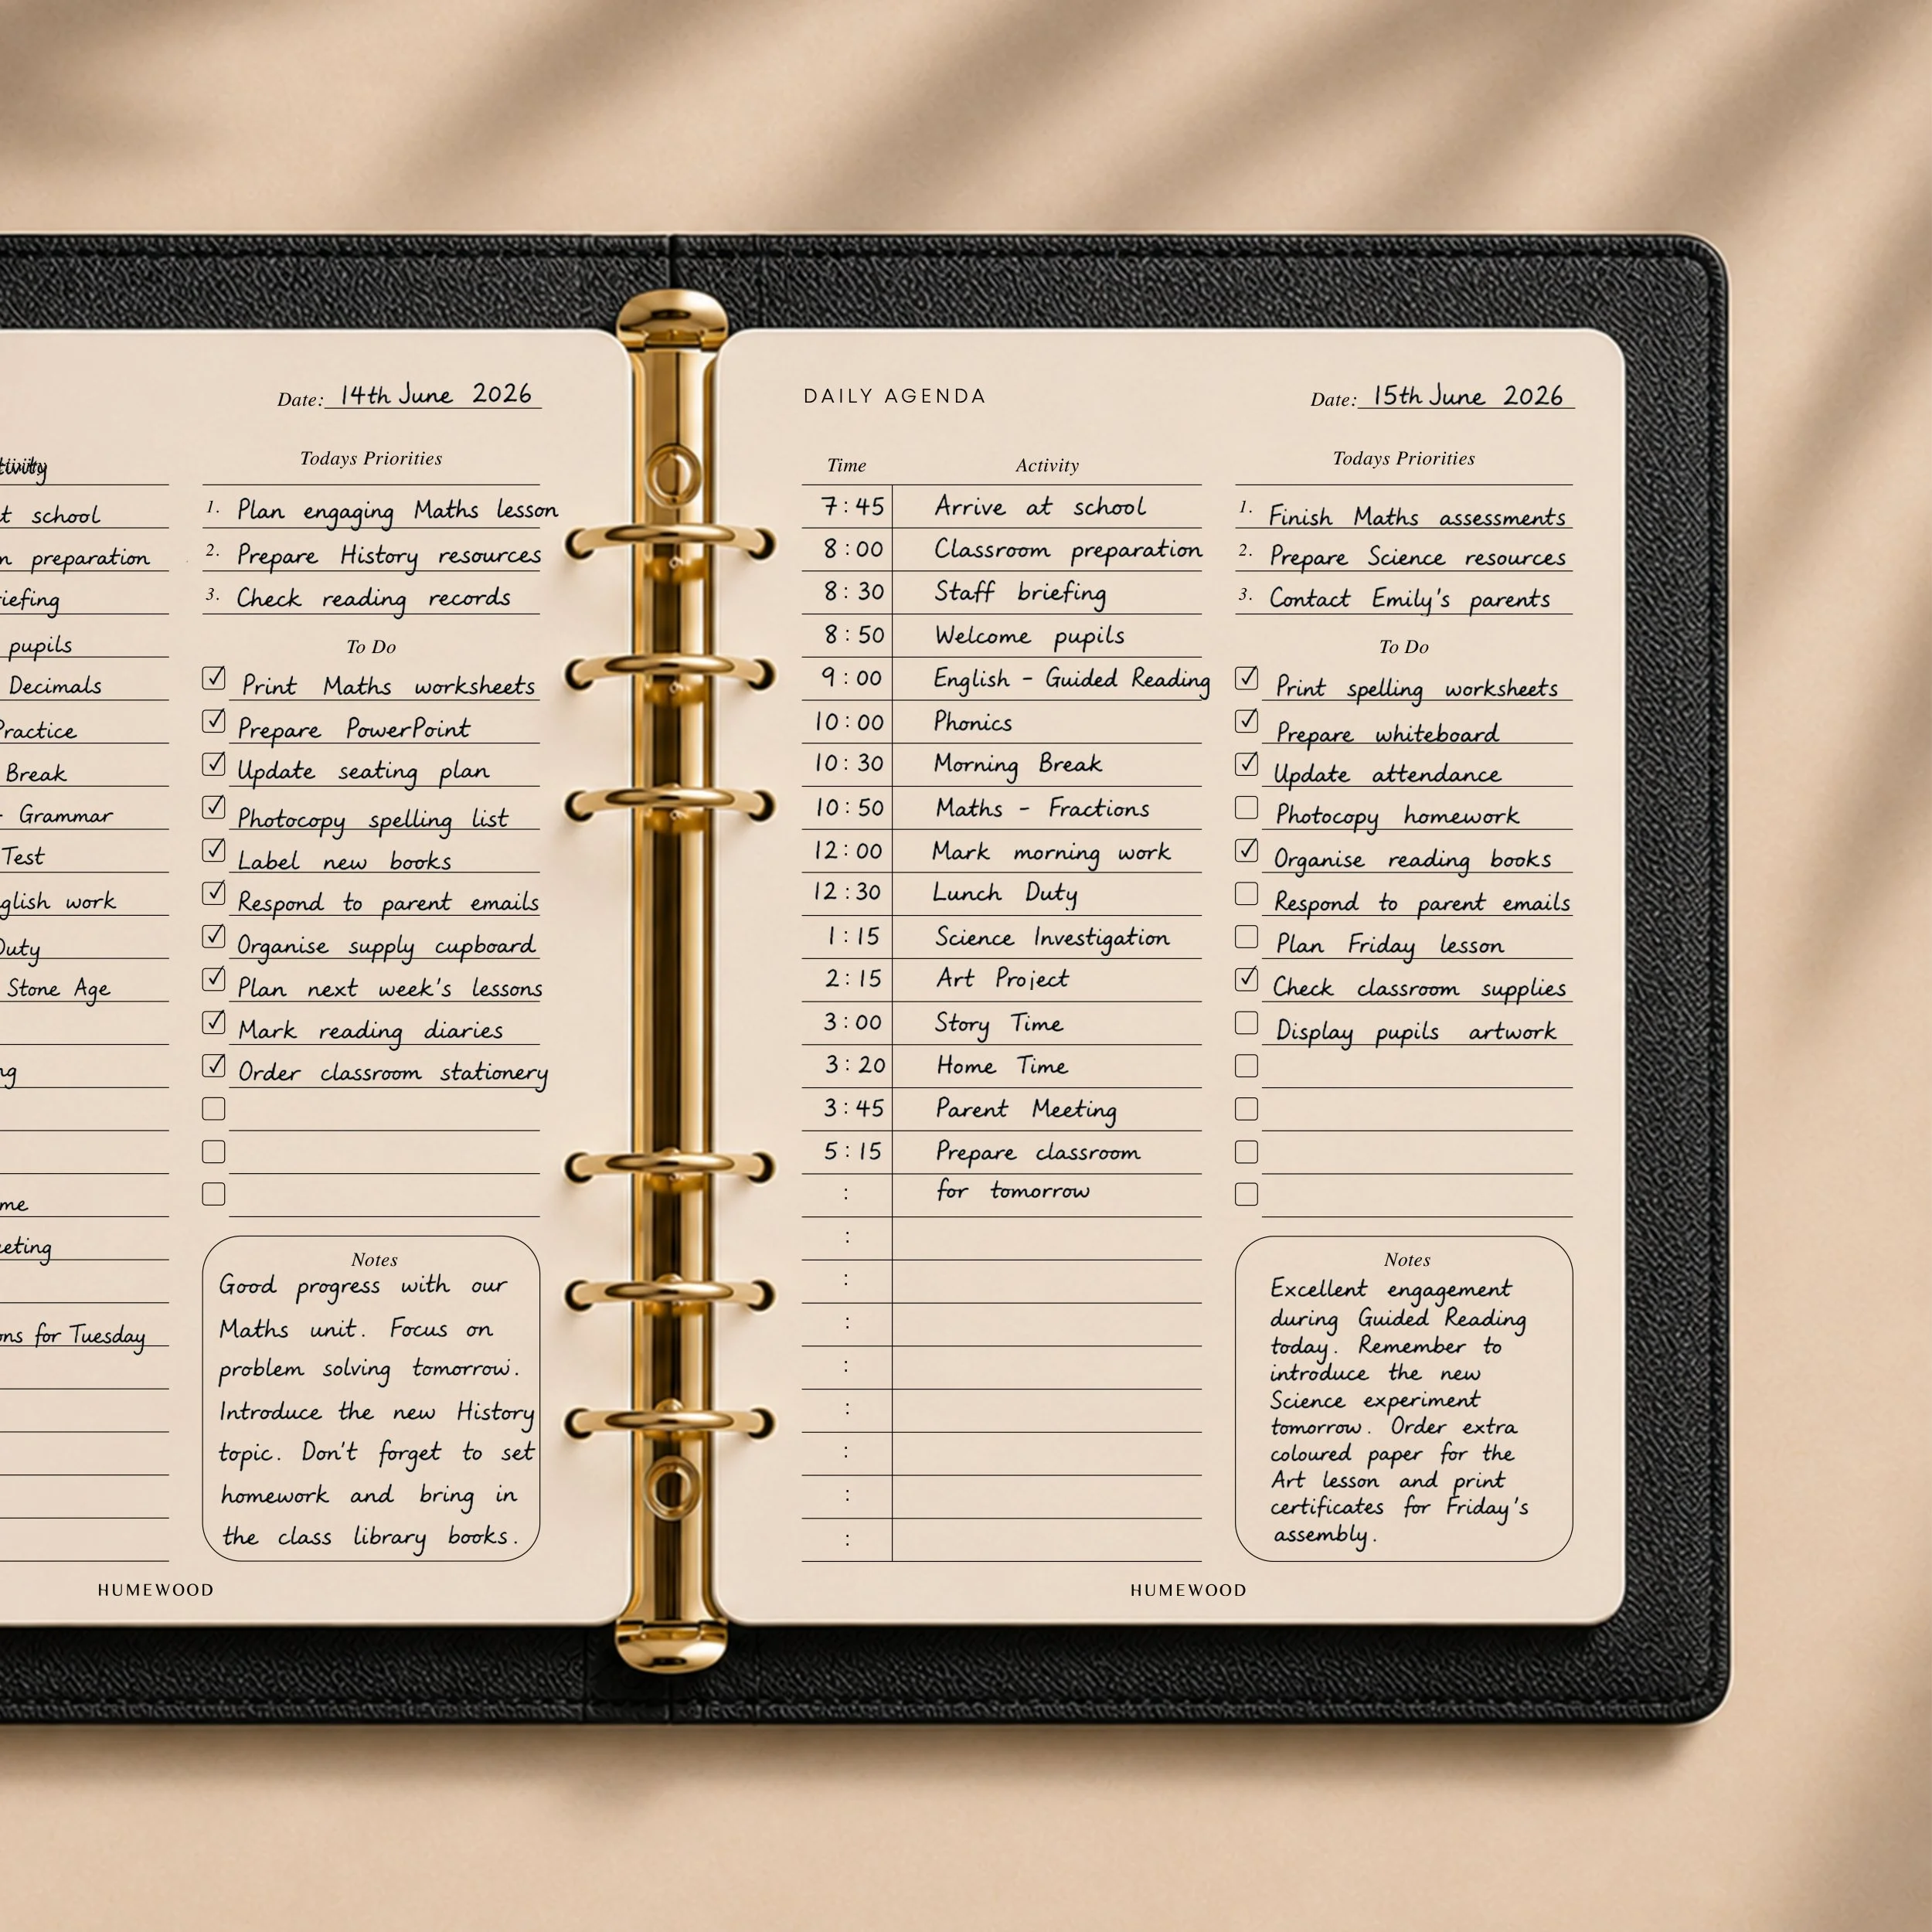 Date: 14th June 2026
t school
n preparation
iefing
pupils
Decimals
Practice
Break
- Grammar
Test
glish work
Duty
Stone Age
ng
me
eeting
ons for Tuesday
Todays Priorities
1. Plan engaging Maths lesson
2. Prepare History resources
3. Check reading records
To Do
Print Maths worksheets
Prepare PowerPoint
Update seating plan
Photocopy spelling list
Label new books
Respond to parent emails
Organise supply cupboard
Plan next week's lessons
Mark reading diaries
Order classroom stationery
Notes
Good progress with our
Maths unit. Focus on
problem solving tomorrow.
Introduce the new History
topic. Don't forget to set
homework and bring in
the class library books.
HUMEWOOD
DAILY AGENDA
Date: 15th June 2026
Time Activity
7:45 Arrive at school
8:00 Classroom preparation
8:30 Staff briefing
8:50 Welcome pupils
9:00 English - Guided Reading
10:00 Phonics
10:30 Morning Break
10:50 Maths - Fractions
12:00 Mark morning work
12:30 Lunch Duty
1:15 Science Investigation
2:15 Art Project
3:00 Story Time
3:20 Home Time
3:45 Parent Meeting
5:15 Prepare classroom
: for tomorrow
:
:
:
:
:
:
:
:
Todays Priorities
1. Finish Maths assessments
2. Prepare Science resources
3. Contact Emily's parents
To Do
Print spelling worksheets
Prepare whiteboard
Update attendance
Photocopy homework
Organise reading books
Respond to parent emails
Plan Friday lesson
Check classroom supplies
Display pupils artwork
Notes
Excellent engagement
during Guided Reading
today. Remember to
introduce the new
Science experiment
tomorrow. Order extra
coloured paper for the
Art lesson and print
certificates for Friday's
assembly.
HUMEWOOD